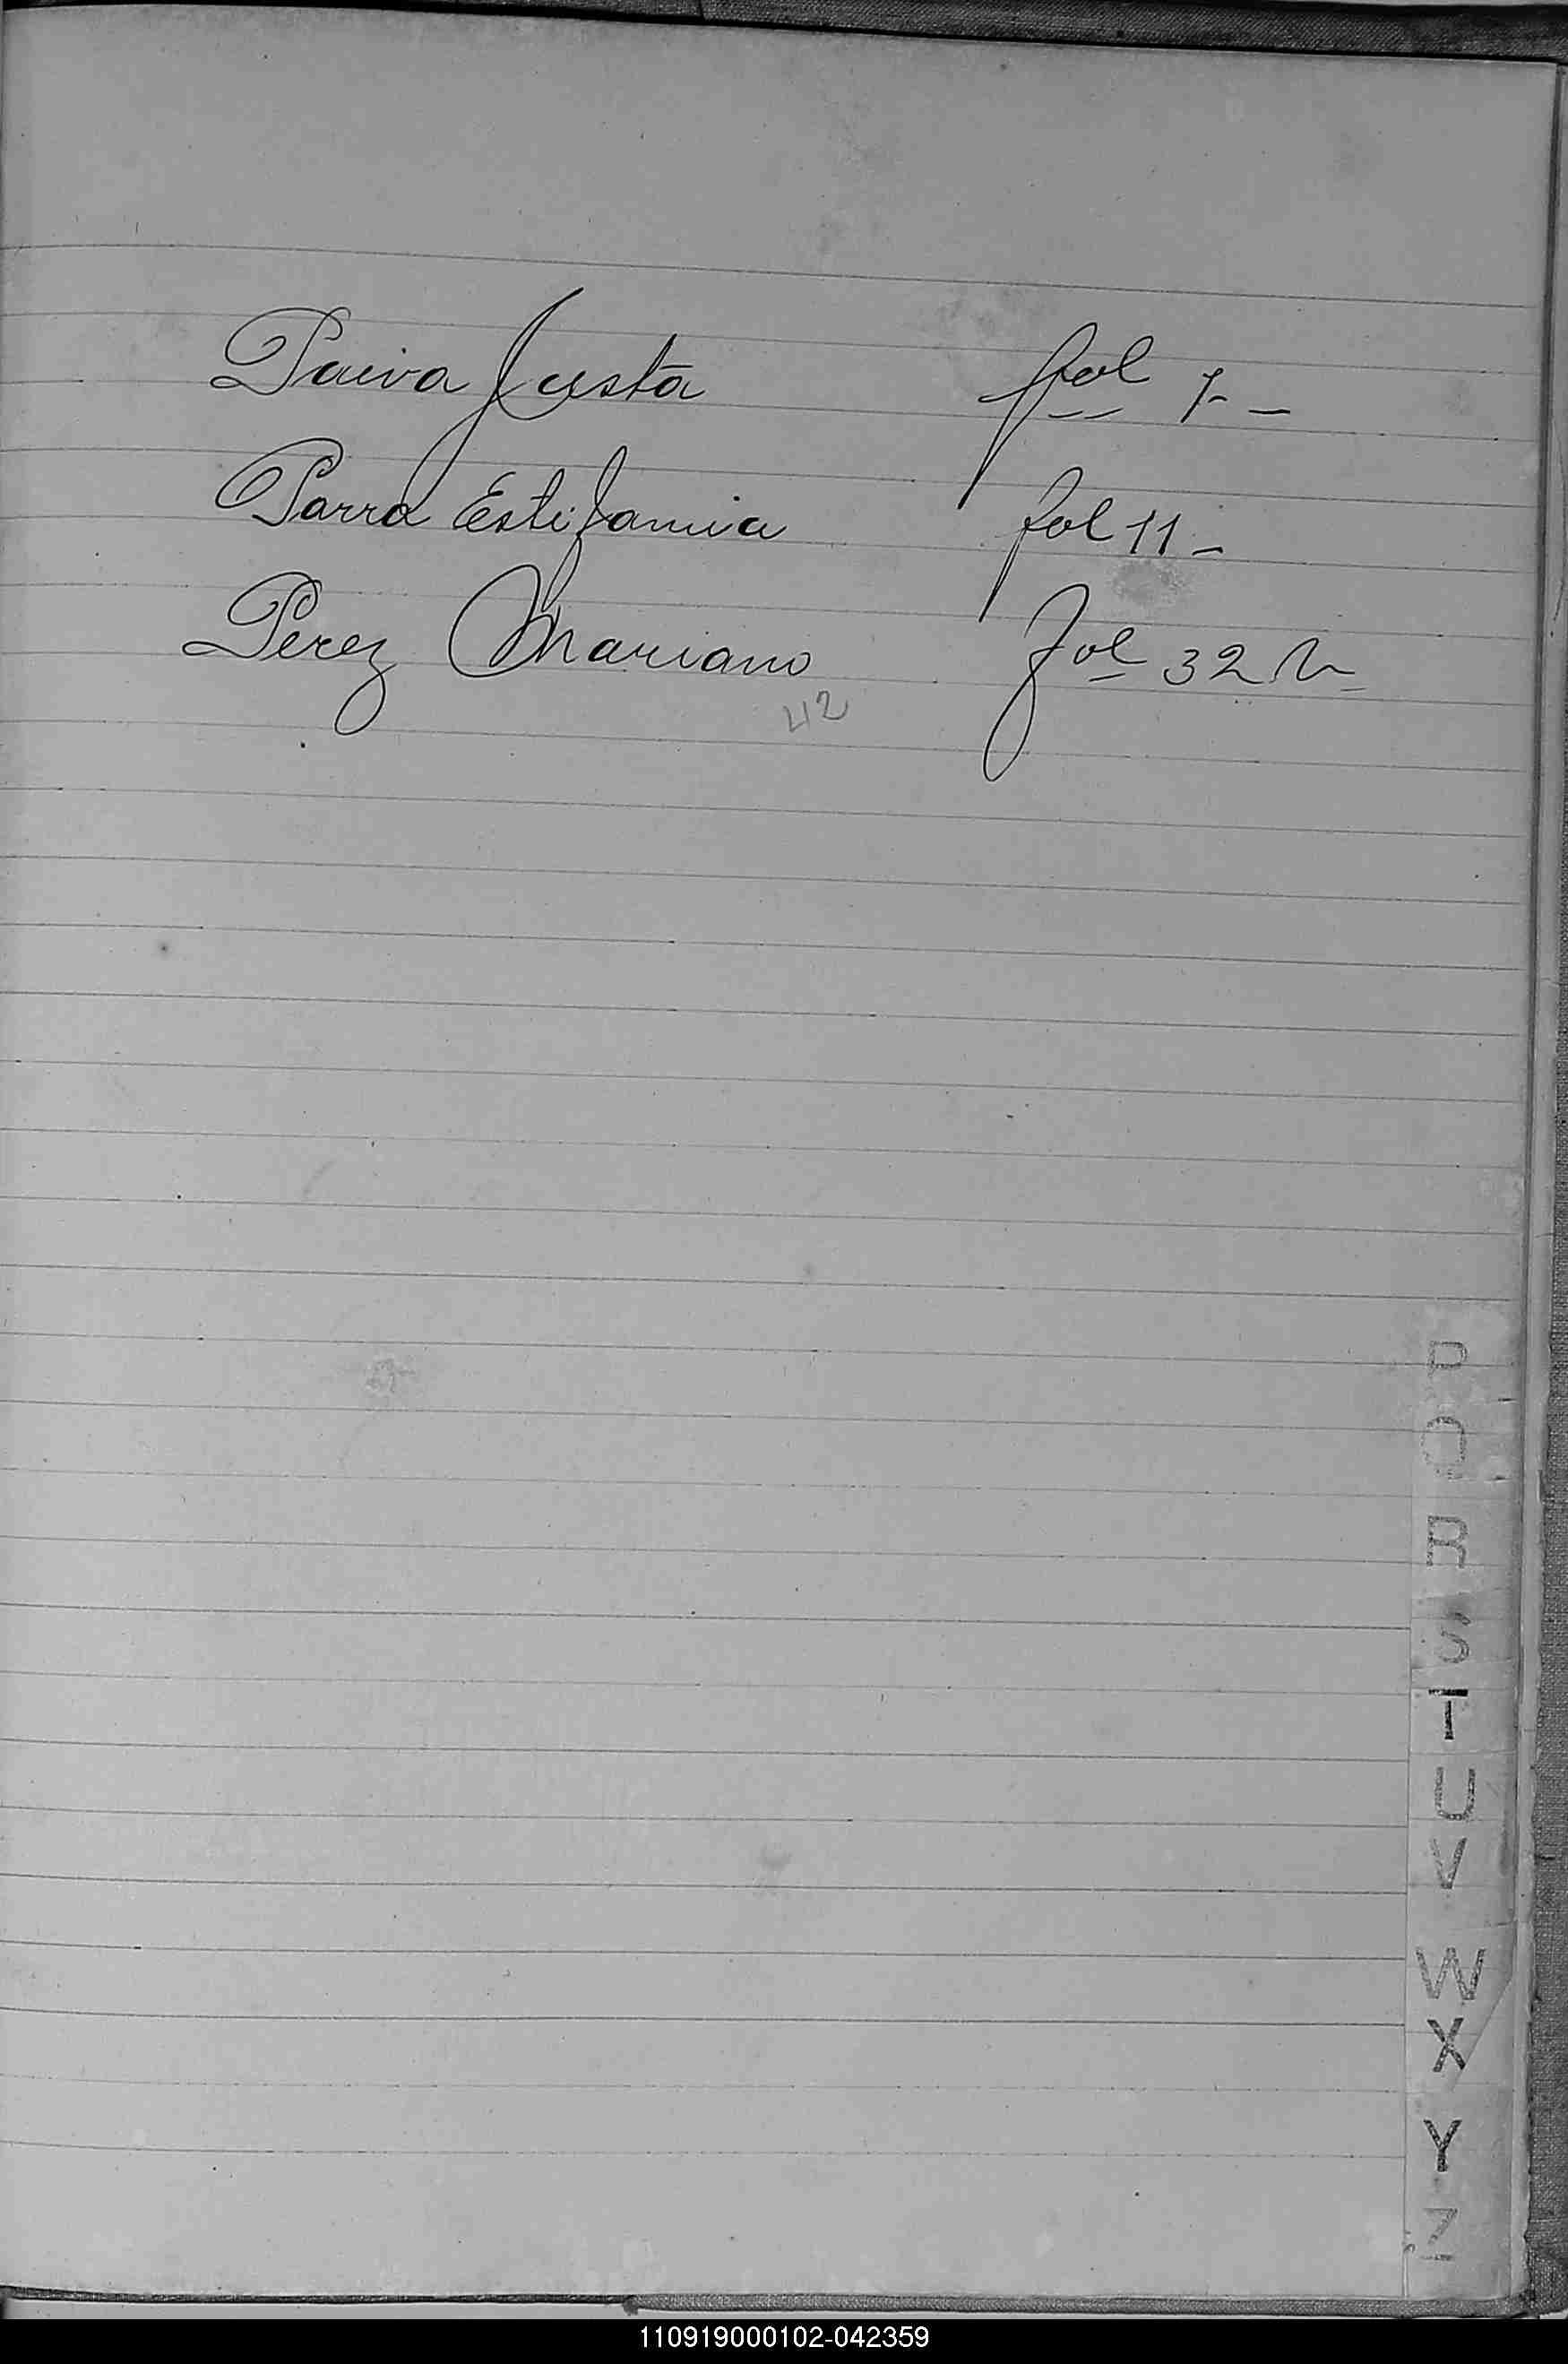 Paiva Justa fol 7-
Parra Estifania fol 11-
Perez Mariano fol 32 v
42
P
Q
R
S
T
U
V
W
X
Y
Z
110919000102-042359